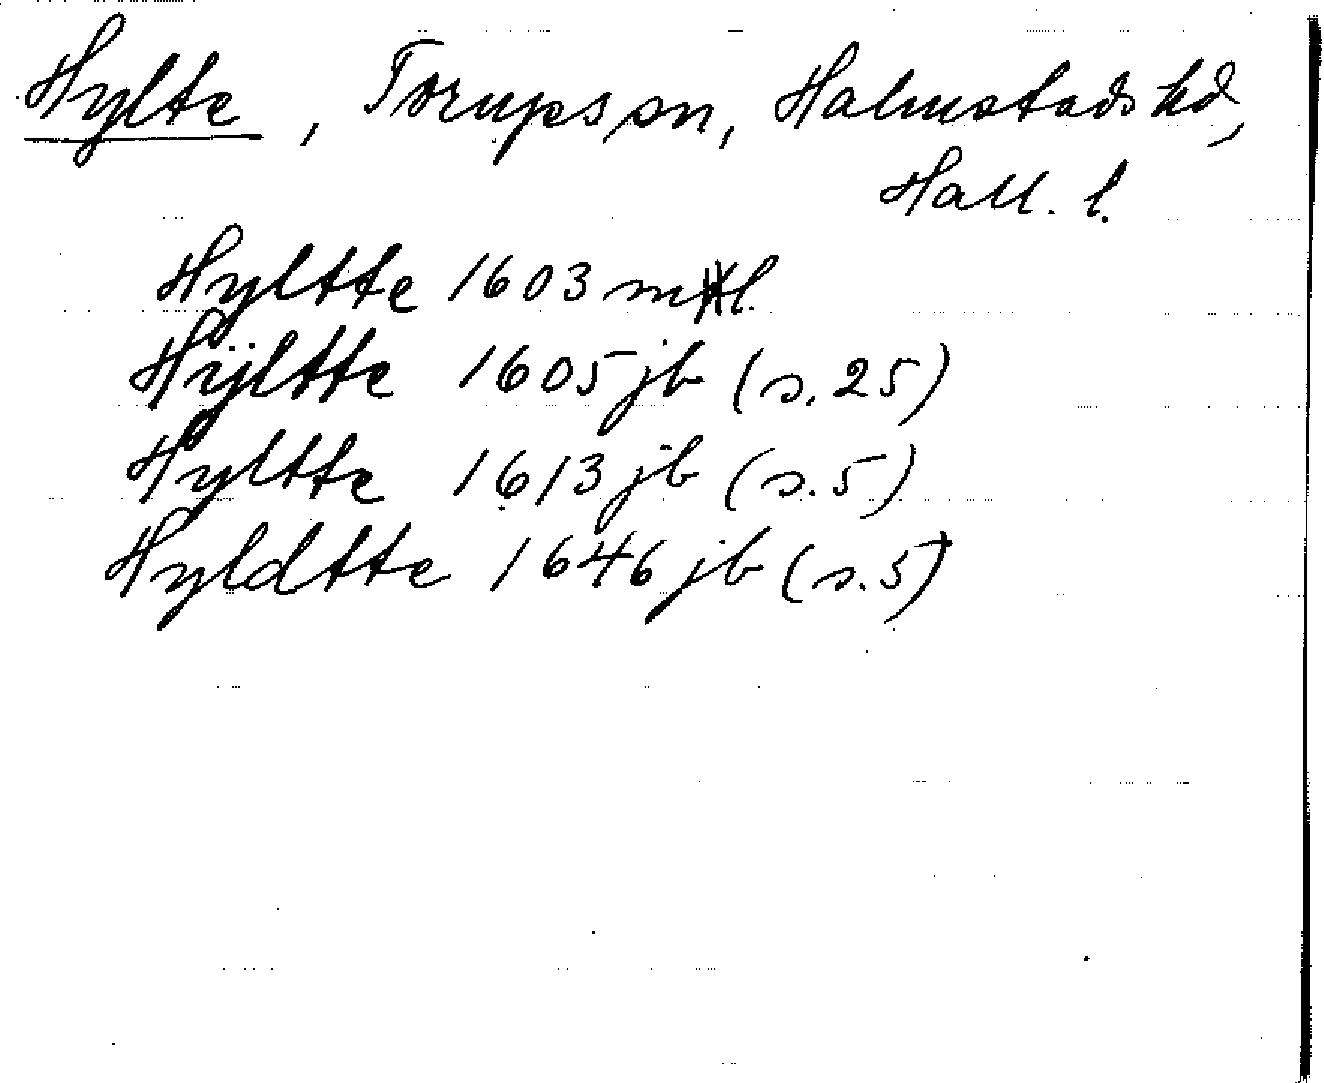 Hylte, Torups sn, Halmstads hd,
Hall. l.
Hyltte 1603 mtl.
Hÿltte 1605 jb (s. 25)
Hyltte 1613 jb (s. 5)
Hyldtte 1646 jb (s. 5)